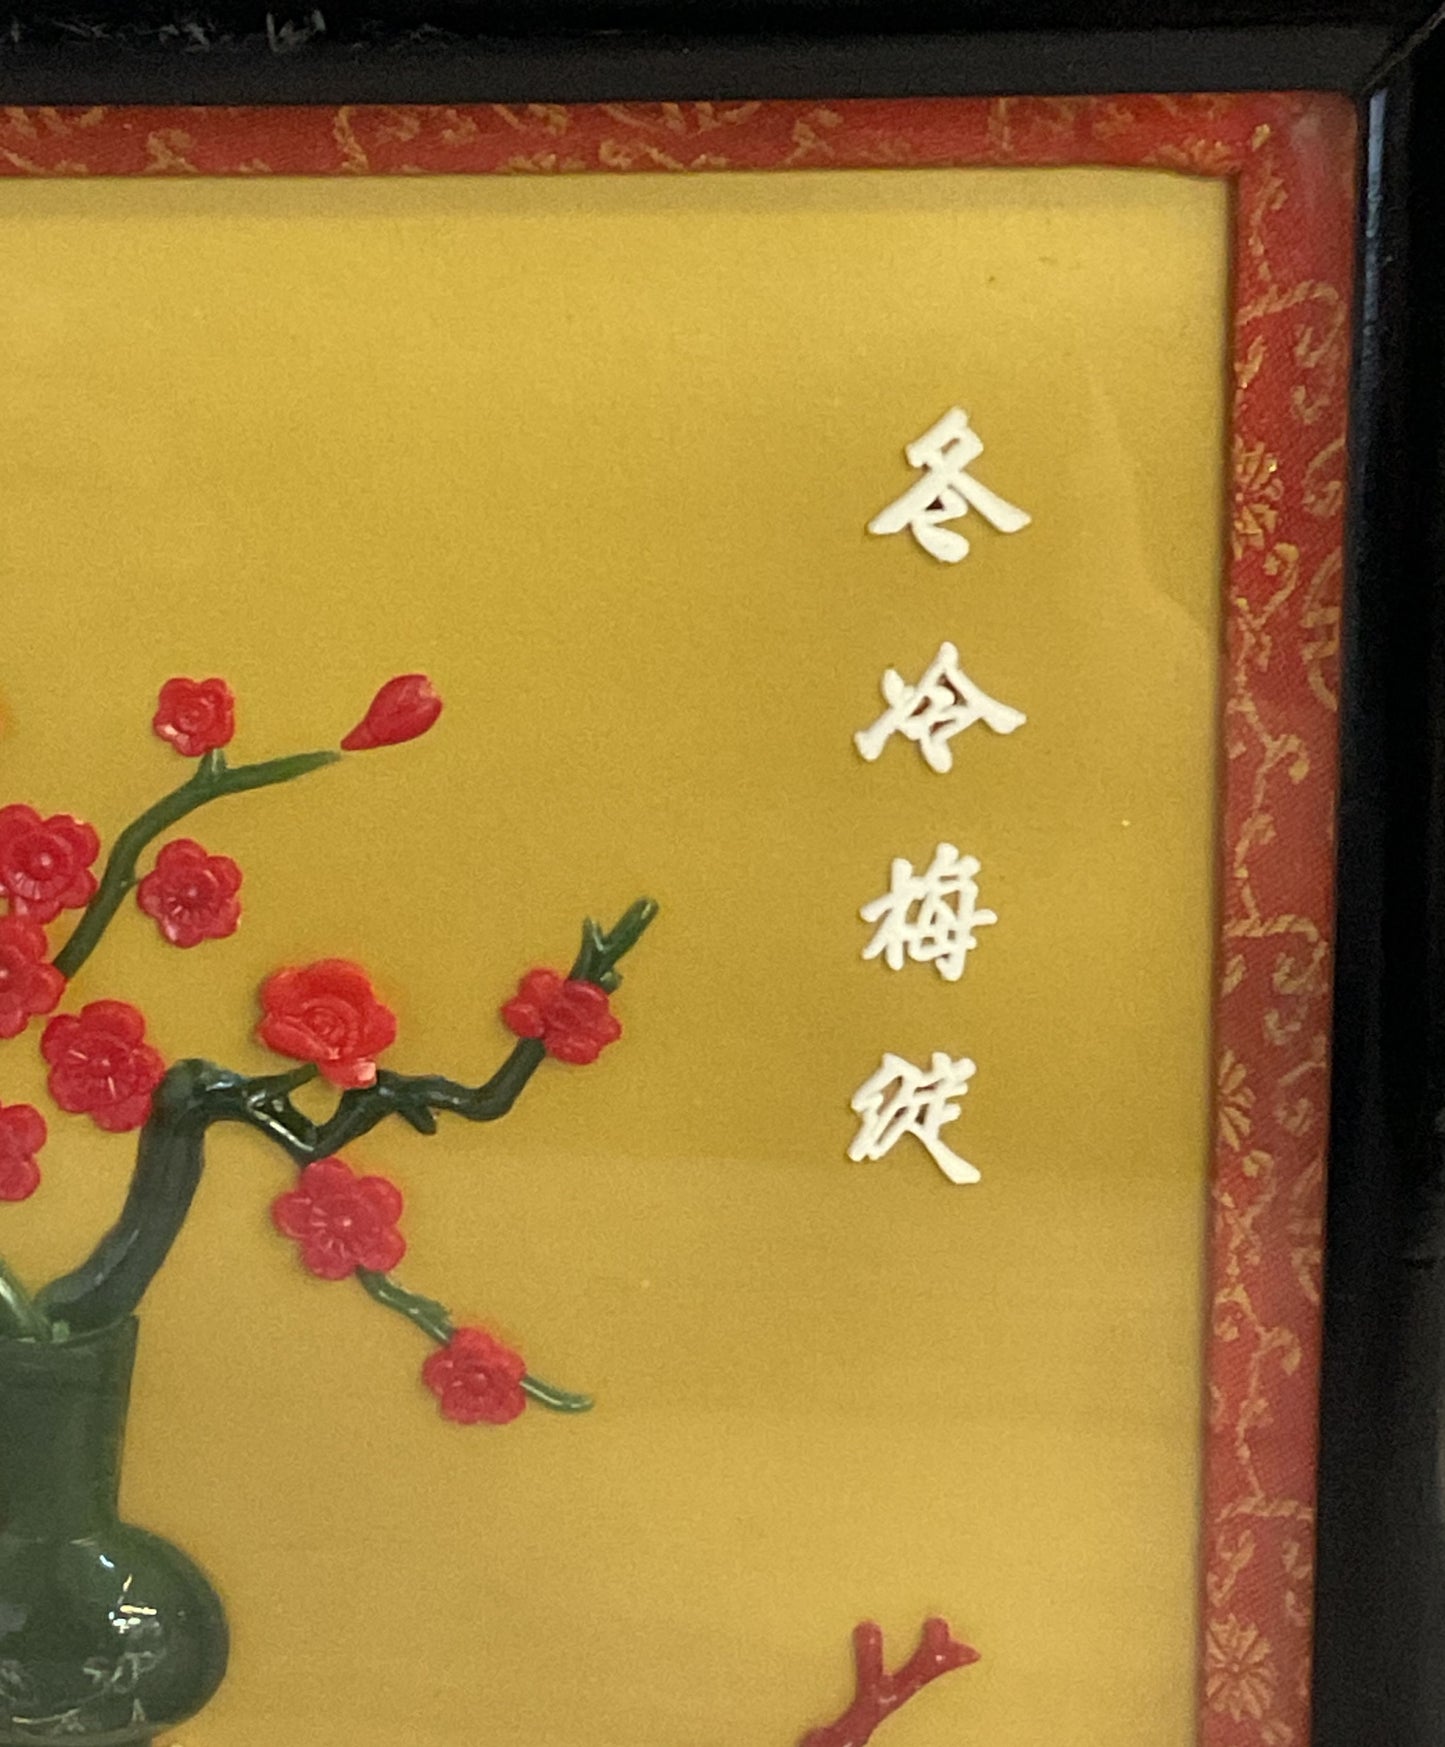 冬冷梅綻